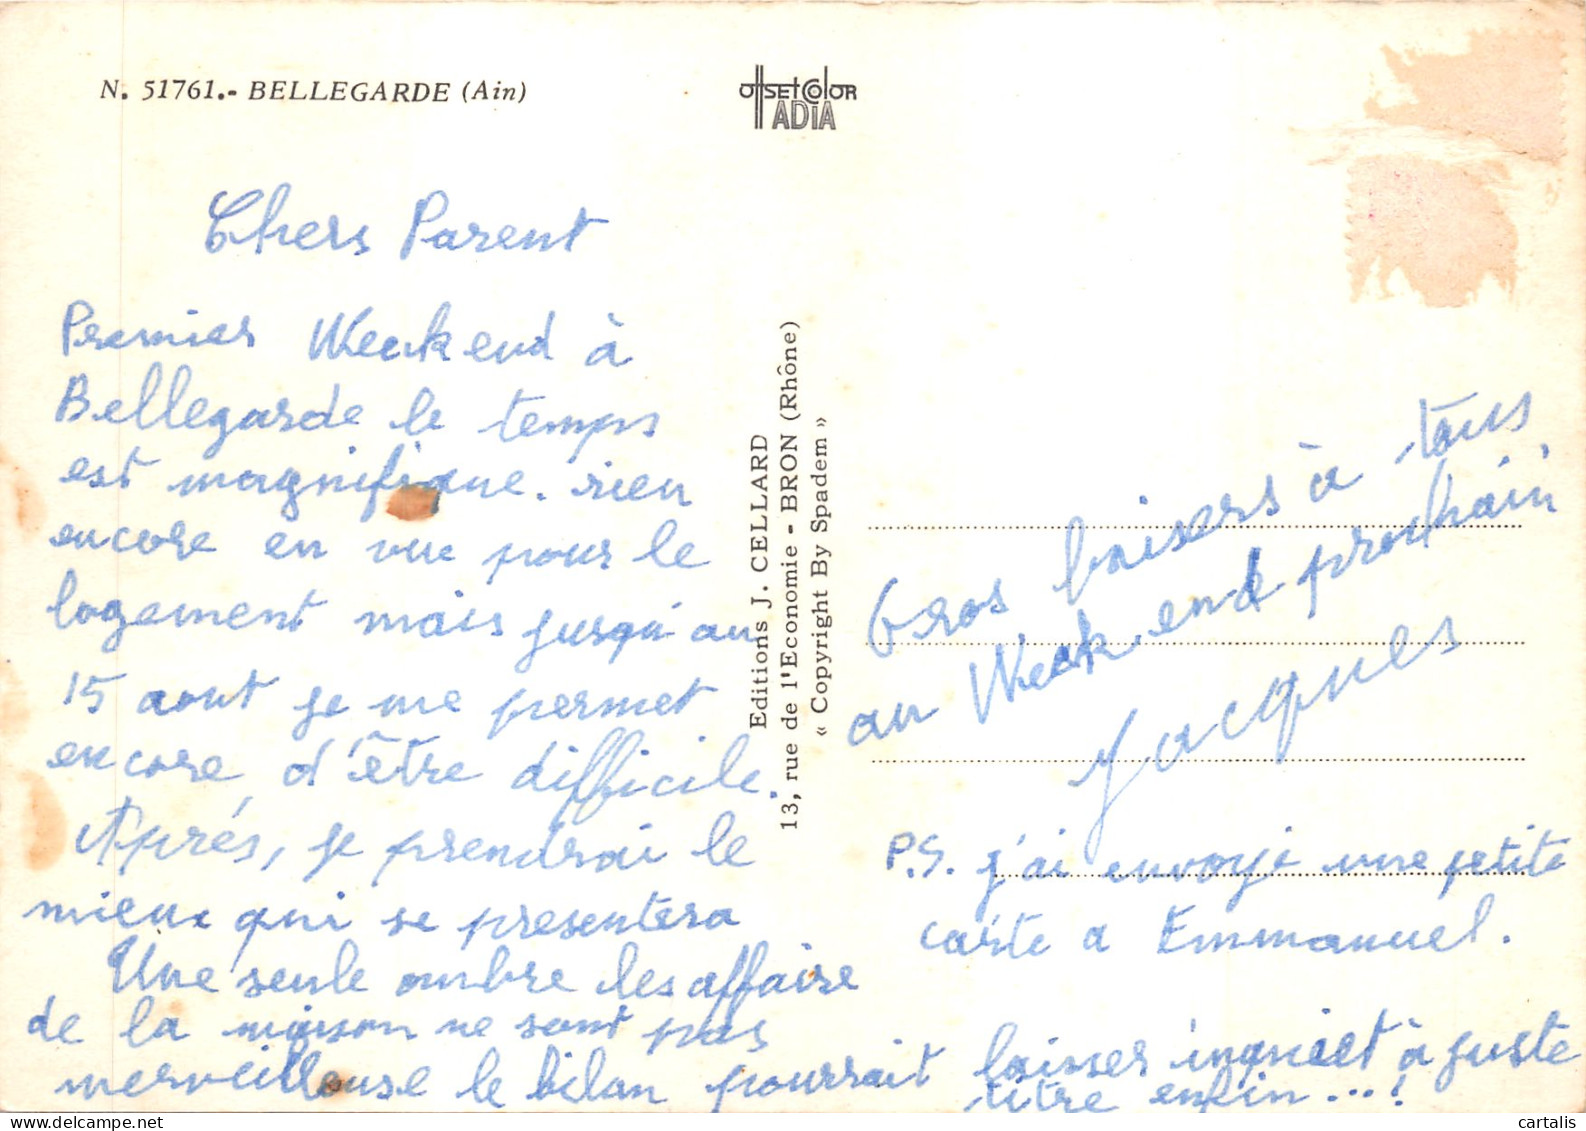 N. 51761.- BELLEGARDE (Ain)
OffSEt Color
ADIA
Chers Parent
Premier Weekend à
Bellegarde le temps
est magnifique. rien
encore en vue pour le
logement mais jusqu'au
15 aout je me permet
encore d'être difficile.
Après, je prendrai le
mieux qui se presentera
Une seule ombre les affaire
de la maison ne sont pas
merveilleuse le bilan pourrait laisser inquiet à juste
titre enfin...!
Editions J. CELLARD
13, rue de l'Economie - BRON (Rhône)
« Copyright By Spadem »
Gros baisers à tous
au Week end prochain
Jacques
P.S. j'ai envoyé une petite
carte a Emmanuel.
cartalis
www.delcampe.net